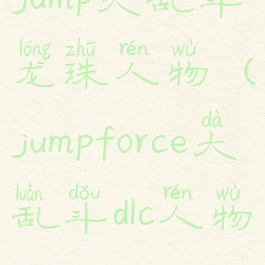 jump大乱斗
lóng zhū rén wù
龙珠人物（
dà
jumpforce大
luàn dǒu rén wù
乱斗dlc人物